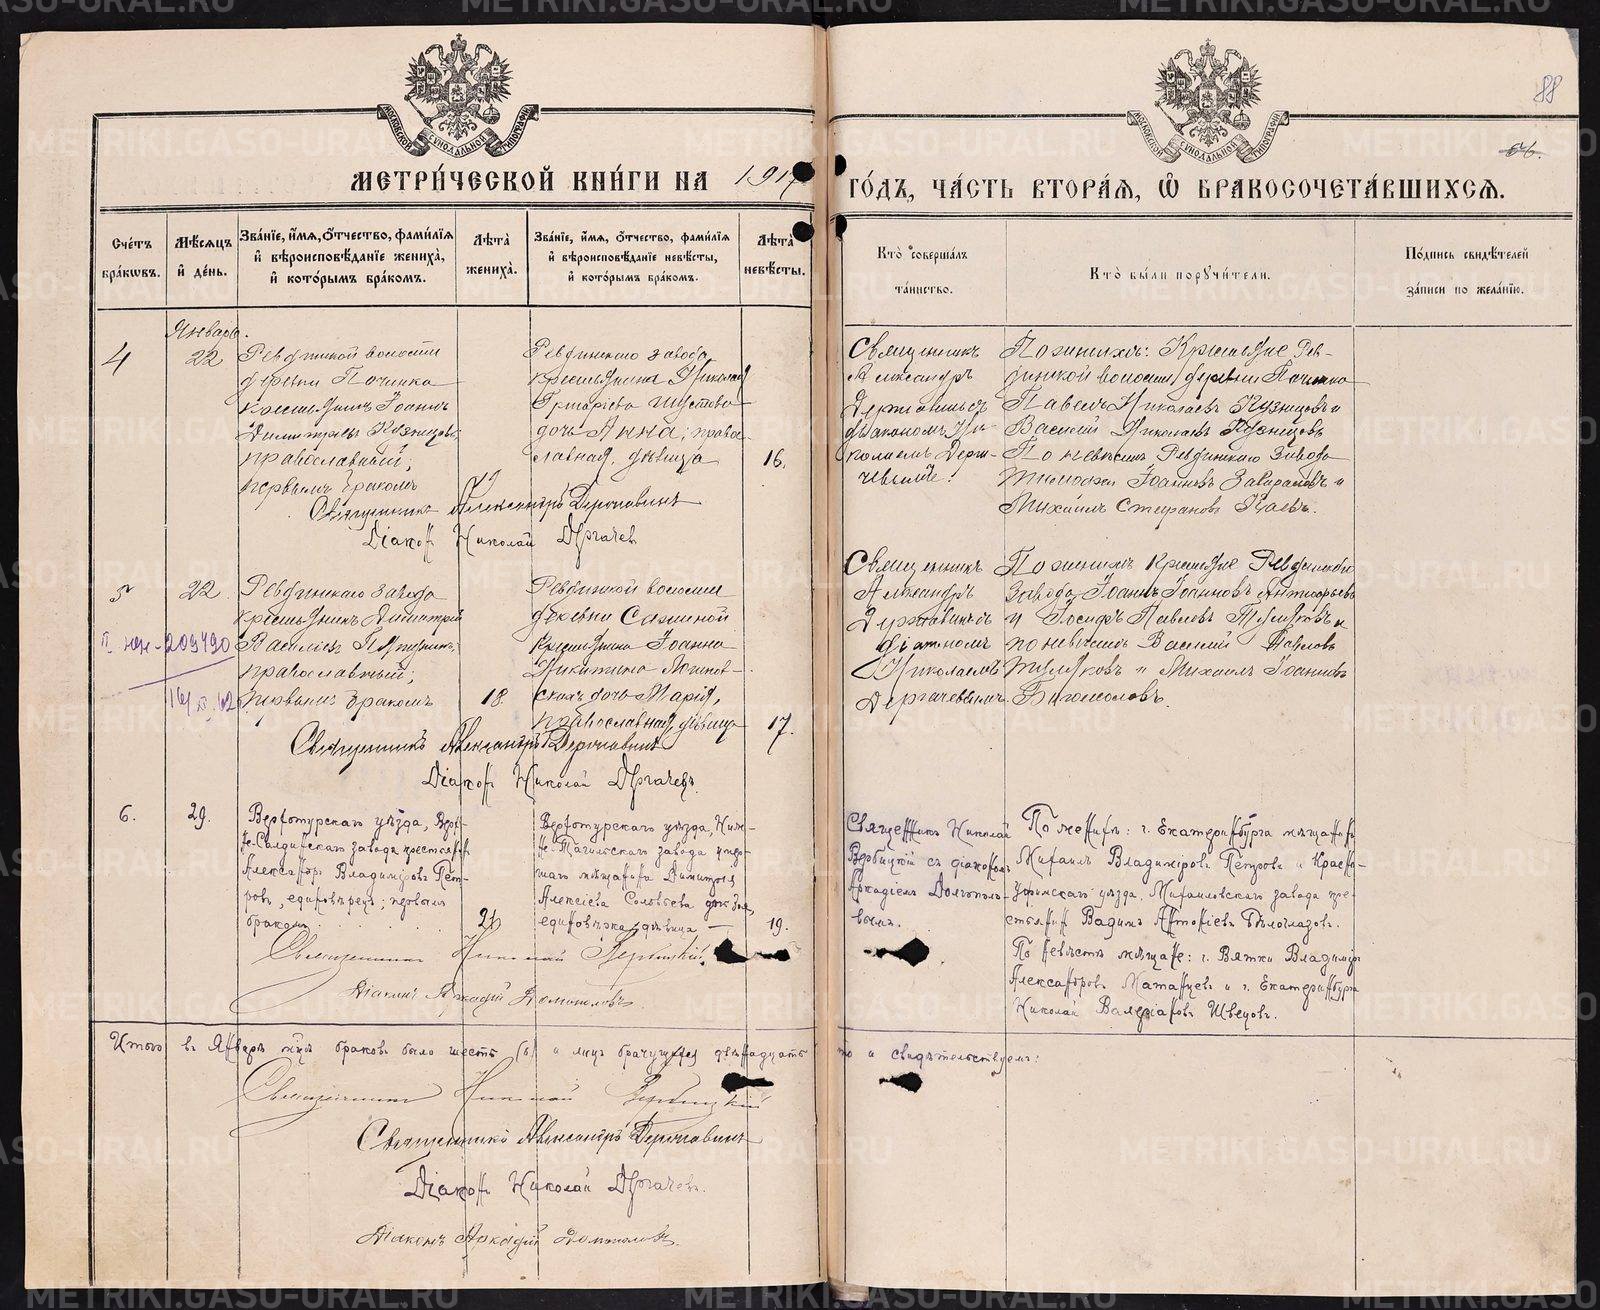 МЕТРИ́ЧЕСКОЙ КНИ́ГИ НА 1917
ГО́ДЪ, ЧА́СТЬ ВТОРА́Я, Ѽ БРАКОСОЧЕТА́ВШИХСЯ.
88
МОСКОВСКОЙ СѴНОДАЛЬНОЙ ТИПОГРАФІИ
МОСКОВСКОЙ СѴНОДАЛЬНОЙ ТИПОГРАФІИ
Сче́тъ бра́кѡвъ.
Мѣ́сяцъ и҆ де́нь.
Зва́нїе, и҆́мя, ѻ҆́тчество, фами́лїя и҆ вѣроисповѣ́данїе жениха̀, и҆ кото́рымъ бра́комъ.
Лѣ́та жениха̀.
Зва́нїе, и҆́мя, ѻ҆́тчество, фами́лїя и҆ вѣроисповѣ́данїе невѣ́сты, и҆ кото́рымъ бра́комъ.
Лѣ́та невѣ́сты.
Кто̀ соверша́лъ та́инство.
Кто̀ бы́ли поручи́тели.
По́дпись свидѣ́телей за́писи по жела́нїю.
Январь.
4
22
Ревдинской волости
деревни Починка
крестьянинъ Іоаннъ
Димитріевъ Кузнецовъ,
православный,
первымъ бракомъ
19
Ревдинскаго завода
крестьянина Николая
Григоріева Шустова
дочь Анна, право-
славная, дѣвица
16.
Священникъ
Александръ
Державинъ съ
діакономъ Ни-
колаемъ Дерга-
чевымъ.
По женихѣ: Крестьяне Рев-
динской волости деревни Починка
Павелъ Николаевъ Кузнецовъ и
Василій Николаевъ Кузнецовъ
По невѣстѣ Ревдинскаго завода
Іоанновъ
Михаилъ Стефановъ
Священникъ Александръ Державинъ
Діаконъ Николай Дергачевъ
5
22
Ревдинскаго завода
крестьянинъ Димитрій
Василіевъ
православный,
первымъ бракомъ
18.
209490
Ревдинской волости
деревни
крестьянина Іоанна
Никитина
дочь Марія,
православная, дѣвица
17.
Священникъ
Александръ
Державинъ съ
діакономъ
Николаемъ
Дергачевымъ
По женихѣ Крестьяне Ревдинскаго
завода Іоаннъ Іоанновъ
и Іосифъ Павловъ и
по невѣстѣ Василій Павловъ
и Михаилъ Іоанновъ
Священникъ Александръ Державинъ
Діаконъ Николай Дергачевъ.
6.
29.
Верхотурскаго уѣзда, Верх-
не-Салдинскаго завода крестьянинъ
Александръ Владиміровъ Пет-
ровъ, единовѣрецъ; первымъ
бракомъ
21
Верхотурскаго уѣзда, Ниж-
не-Тагильскаго завода умер-
шаго мѣщанина Димитрія
Алексіева Соловьева дочь Зоя,
единовѣрка, дѣвица —
19.
Священникъ Николай
Вербицкій съ діакономъ
Аркадіемъ Домополо-
вымъ.
По женихѣ: г. Екатеринбурга мѣщанинъ
Михаилъ Владиміровъ Петровъ и Красно-
уфимскаго уѣзда, Михаиловскаго завода кре-
стьянинъ Вадимъ Антоніевъ Бѣлоглазовъ.
По невѣстѣ мѣщане: г. Вятки Владиміръ
Александровъ Матанцевъ и г. Екатеринбурга
Николай Валеріановъ Швецовъ.
Священникъ Николай Вербицкій.
Діаконъ Аркадій Домополовъ.
Итого въ Январѣ мѣсяцѣ браковъ было шесть (6) и лицъ брачущихся двѣнадцать
что и свидѣтельствуемъ:
Священникъ Николай Вербицкій
Священникъ Александръ Державинъ
Діаконъ Николай Дергачевъ.
Діаконъ Аркадій Домополовъ.
METRIKI.GASO-URAL.RU